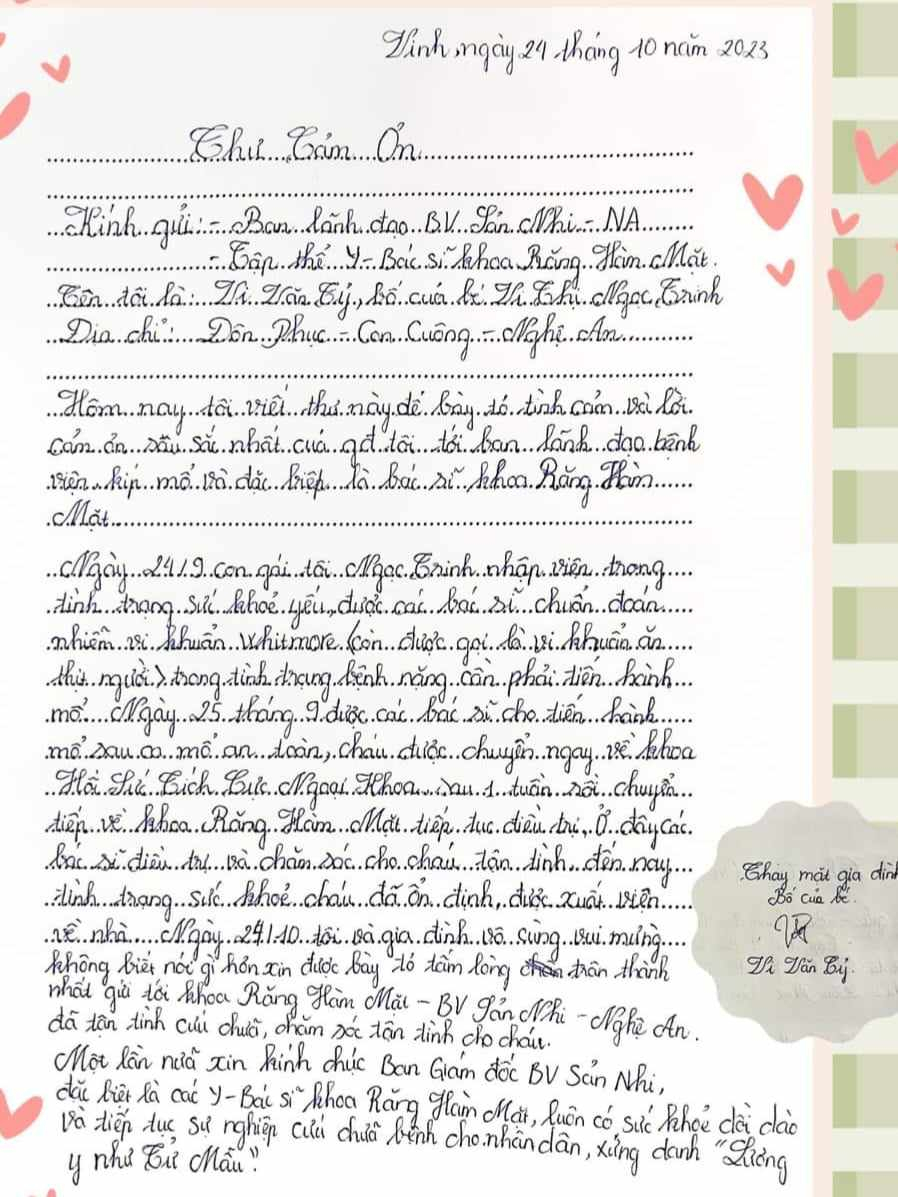 Vinh, ngày 24 tháng 10 năm 2023
Thư Cảm Ơn
Kính gửi: - Ban lãnh đạo BV Sản Nhi - NA
- Tập thể Y - Bác sĩ khoa Răng Hàm Mặt.
Tên tôi là: Vi Văn Tý, bố của bé Vi Thị Ngọc Trinh
Địa chỉ: Đôn Phục - Con Cuông - Nghệ An
Hôm nay tôi viết thư này để bày tỏ tình cảm và lời
cảm ơn sâu sắc nhất của gđ tôi tới ban lãnh đạo bệnh
viện, kíp mổ và đặc biệp là bác sĩ khoa Răng Hàm
Mặt
Ngày 24/9 con gái tôi Ngọc Trinh nhập viện trong
tình trạng sức khoẻ yếu, được các bác sĩ chuẩn đoán
nhiễm vi khuẩn Whitmore (còn được gọi là vi khuẩn ăn
thịt người) trong tình trạng bệnh nặng cần phải tiến hành
mổ. Ngày 25 tháng 9 được các bác sĩ cho tiến hành
mổ sau ca mổ an toàn, cháu được chuyển ngay về khoa
Hồi Sức Tích Cực Ngoại Khoa, sau 1 tuần rồi chuyển
tiếp về khoa Răng Hàm Mặt tiếp tục điều trị, Ở đây các
bác sĩ điều trị và chăm sóc cho cháu tận tình đến nay
tình trạng sức khoẻ cháu đã ổn định, được xuất viện
về nhà. Ngày 24/10 tôi và gia đình vô cùng vui mừng
không biết nói gì hơn xin được bày tỏ tấm lòng trân thành
nhất gửi tới khoa Răng Hàm Mặt - BV Sản Nhi - Nghệ An.
đã tận tình cứu chữa, chăm sóc tận tình cho cháu.
Một lần nữa xin kính chúc Ban Giám đốc BV Sản Nhi,
đặc biệt là các Y - Bác sĩ khoa Răng Hàm Mặt, luôn có sức khoẻ dồi dào
và tiếp tục sự nghiệp cứu chữa bệnh cho nhân dân, xứng danh "Lương
y như Từ Mẫu".
Thay mặt gia đình
Bố của bé.
Vi Văn Tý.